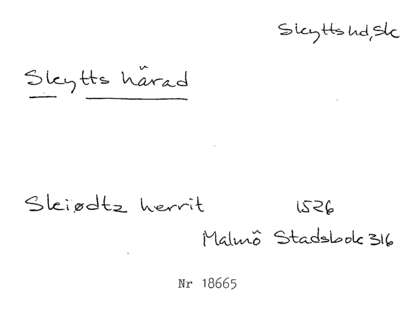 Skytts hd, Sk
Skytts härad
Skiødtz herrit 1526
Malmö Stadsbok 316
Nr 18665